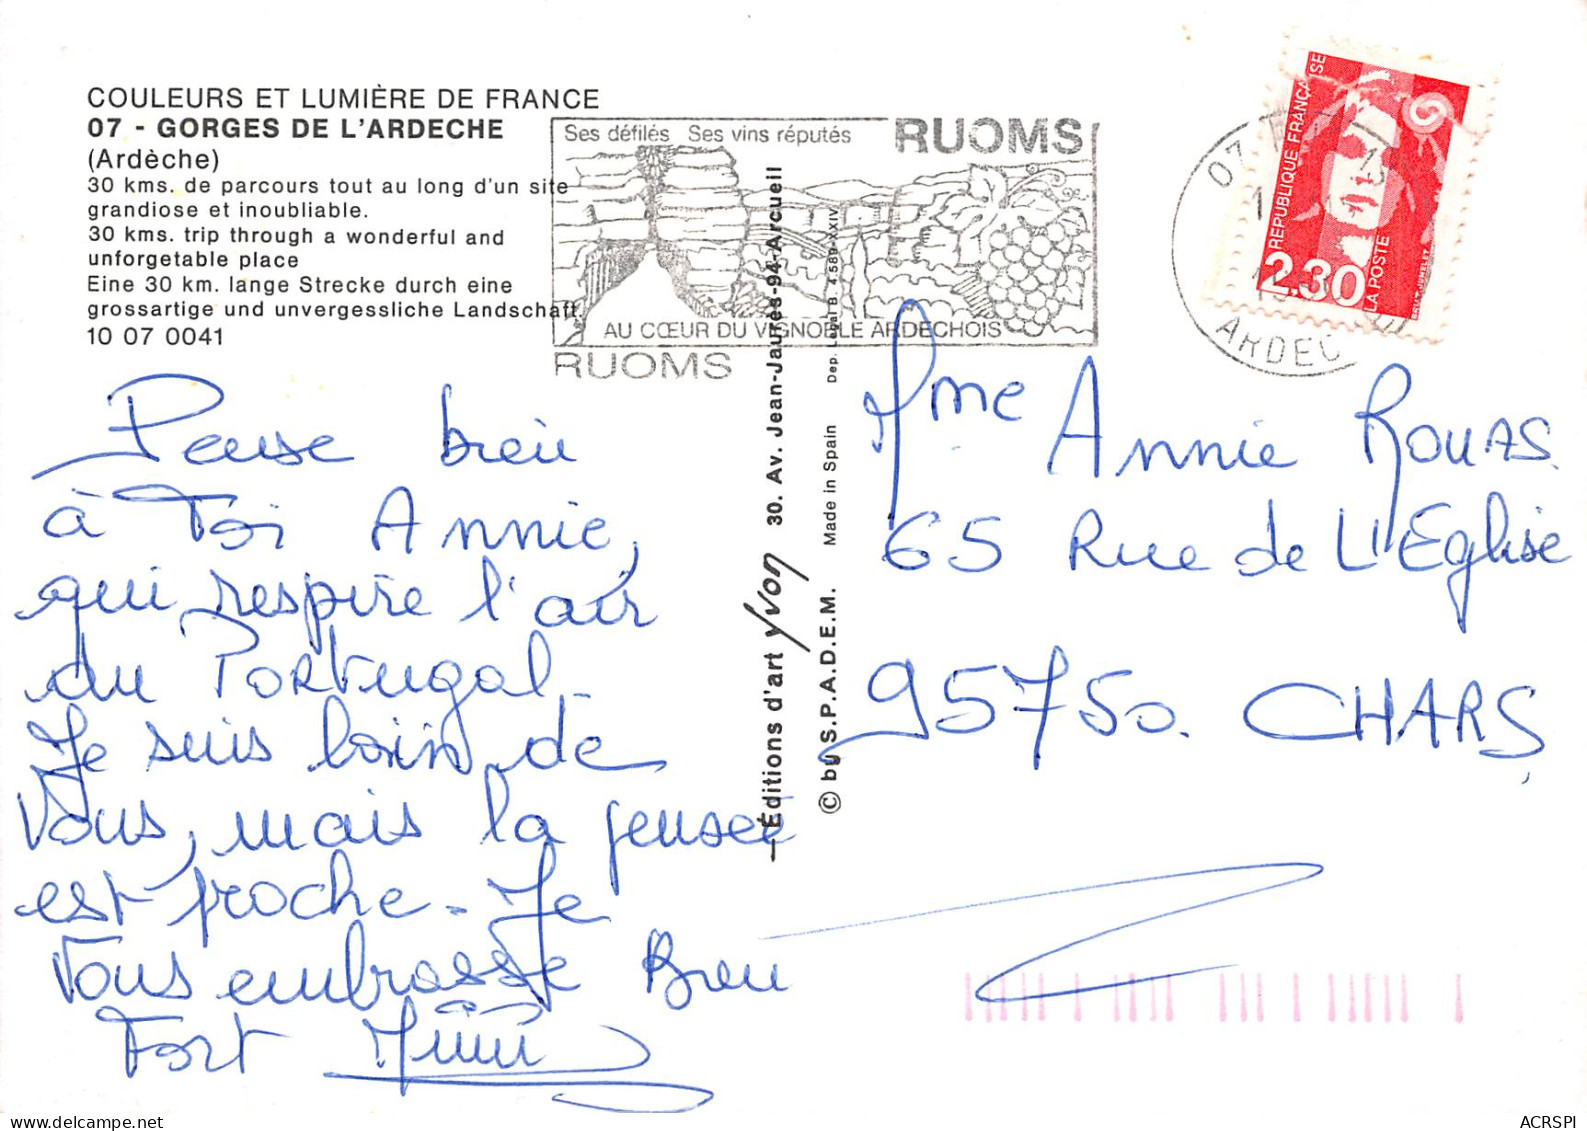 COULEURS ET LUMIÈRE DE FRANCE
07 - GORGES DE L'ARDECHE
(Ardèche)
30 kms. de parcours tout au long d'un site
grandiose et inoubliable.
30 kms. trip through a wonderful and
unforgetable place
Eine 30 km. lange Strecke durch eine
grossartige und unvergessliche Landschaft.
10 07 0041
Ses défilés Ses vins réputés
RUOMS
AU CŒUR DU VIGNOBLE ARDECHOIS
RUOMS
07
ARDEC
RÉPUBLIQUE FRANÇAISE
2,30
LA POSTE
Pense bien
à Toi Annie,
qui respire l'air
du Portugal.
Je suis loin de
Vous, mais la pensée
est proche. Je
Vous embrasse Bien
Fort Mimi
—Éditions d'art Yvon 30. Av. Jean-Jaurès-94-Arcueil
© by S.P.A.D.E.M. Made in Spain Dep. Legal B. 4.589-XXIV
Mme Annie ROUAS
65 Rue de L'Eglise
95750. CHARS
ACRSPI